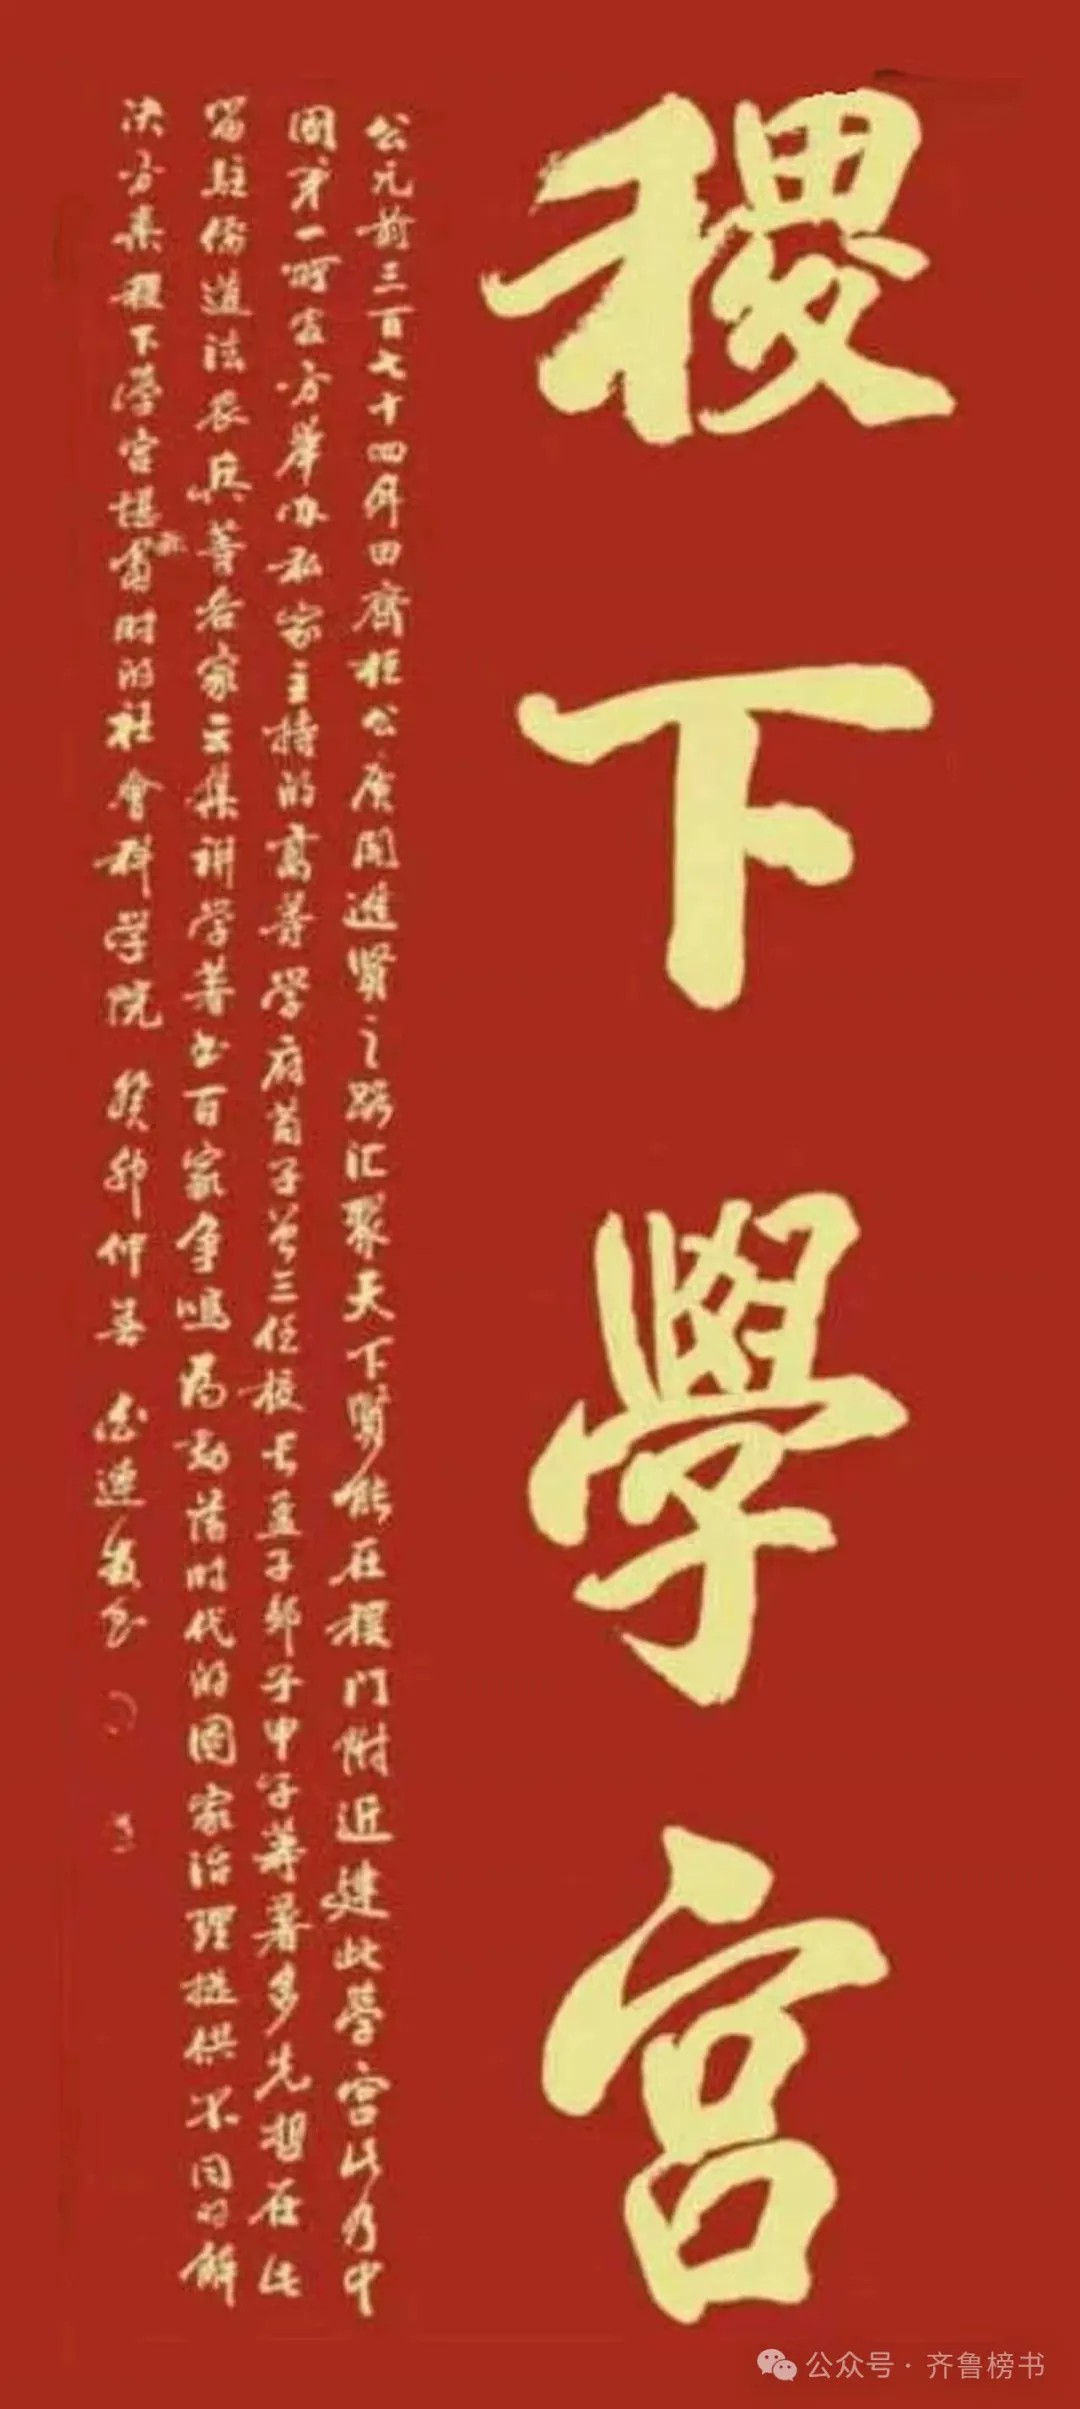 稷下學宮
公元前三百七十四年田齊桓公廣開進賢之路汇聚天下贤能在稷門附近建此學宮此乃中
國第一所官方舉办私家主持的高等学府荀子曾三任校长孟子邹子申子等著多先哲在此
留駐儒道法農兵等各家云集讲学著书百家争鸣為動荡时代的國家治理提供不同的解
决方案稷下學宫堪當时的社會科学院 癸卯仲 连
公众号·齐鲁榜书